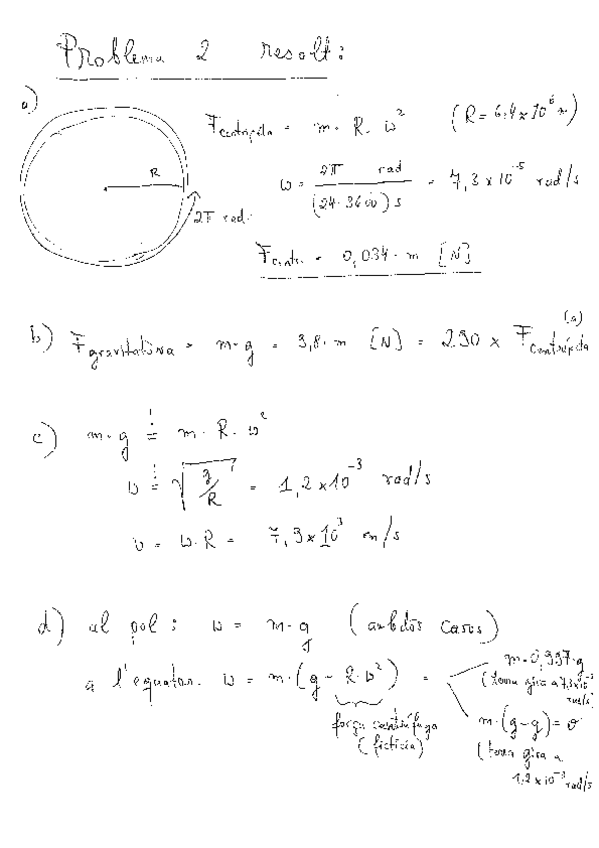 Problema 2 resolt:
a)
R
2π rad.
F centrípeta = m · R · ω² (R = 6.4 × 10⁶ m)
ω = 2π rad / (24·3600) s = 7,3 × 10⁻⁵ rad/s
F centr. = 0,034 · m [N]
b) F gravitatòria = m·g = 9,8 · m [N] = 290 × F centrípeta (a)
c) m·g = m · R · ω²
ω = √(g/R) = 1,2 × 10⁻³ rad/s
v = ω · R = 7,9 × 10³ m/s
d) al pol: w = m·g (ambdós casos)
a l'equator. w = m·(g - R·ω²) =
força centrífuga
(fictícia)
m·0,997·g
(terra gira a 7,3×10⁻⁵
rad/s)
m·(g-g) = 0
(terra gira a
1,2 × 10⁻³ rad/s